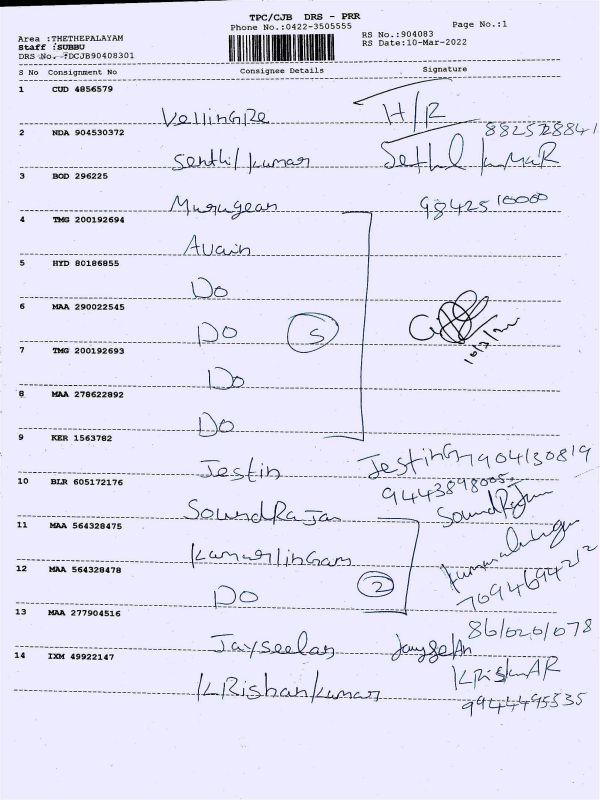 TPC/CJB DRS - PRR
Phone No.:0422-3505555
Page No.:1
Area :THETHEPALAYAM
RS No.:904083
Staff :SUBBU
RS Date:10-Mar-2022
DRS No. :DCJB90408301
S No Consignment No Consignee Details Signature
1 CUD 4856579
VellingRe H/R
2 NDA 904530372
8825288841
Senthil kumar Sethil kumaR
3 BOD 296225
Murugean 9842510000
4 TMG 200192694
Avain
5 HYD 80186855
Do
6 MAA 290022545
Do 5
10/3/22
7 TMG 200192693
Do
8 MAA 278622892
Do
9 KER 1563782
Jestin Jestin 7904130819
10 BLR 605172176
9443898005
SoundRajan SoundRajan
11 MAA 564328475
kumarlingam
12 MAA 564328478
Do 2 7094694212
13 MAA 277904516
8610201078
Jayseelan JayseelAn
14 IXM 49922147
KRishankumar
9944495535